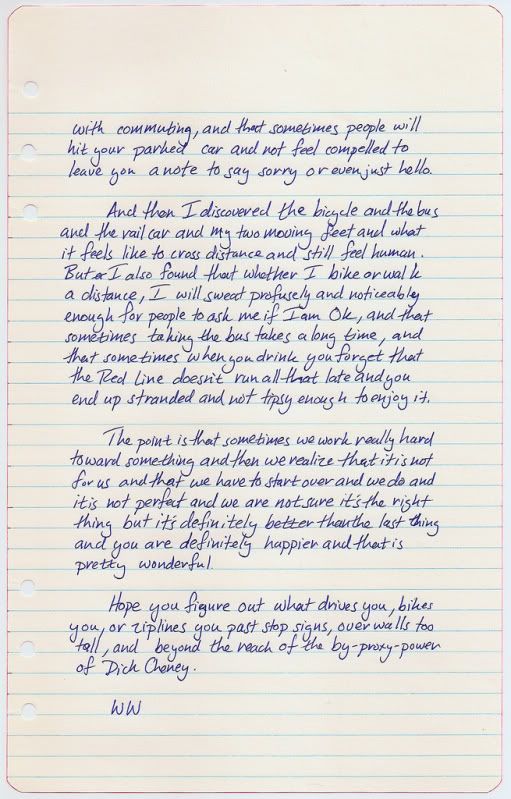 with commuting, and that sometimes people will
hit your parked car and not feel compelled to
leave you a note to say sorry or even just hello.
And then I discovered the bicycle and the bus
and the rail car and my two moving feet and what
it feels like to cross distance and still feel human.
But I also found that whether I bike or walk
a distance, I will sweat profusely and noticeably
enough for people to ask me if I am Ok, and that
sometimes taking the bus takes a long time, and
that sometimes when you drink you forget that
the Red Line doesn't run all that late and you
end up stranded and not tipsy enough to enjoy it.
The point is that sometimes we work really hard
toward something and then we realize that it is not
for us and that we have to start over and we do and
it is not perfect and we are not sure it's the right
thing but it's definitely better than the last thing
and you are definitely happier and that is
pretty wonderful.
Hope you figure out what drives you, bikes
you, or ziplines you past stop signs, over walls too
tall, and beyond the reach of the by-proxy-power
of Dick Cheney.
WW